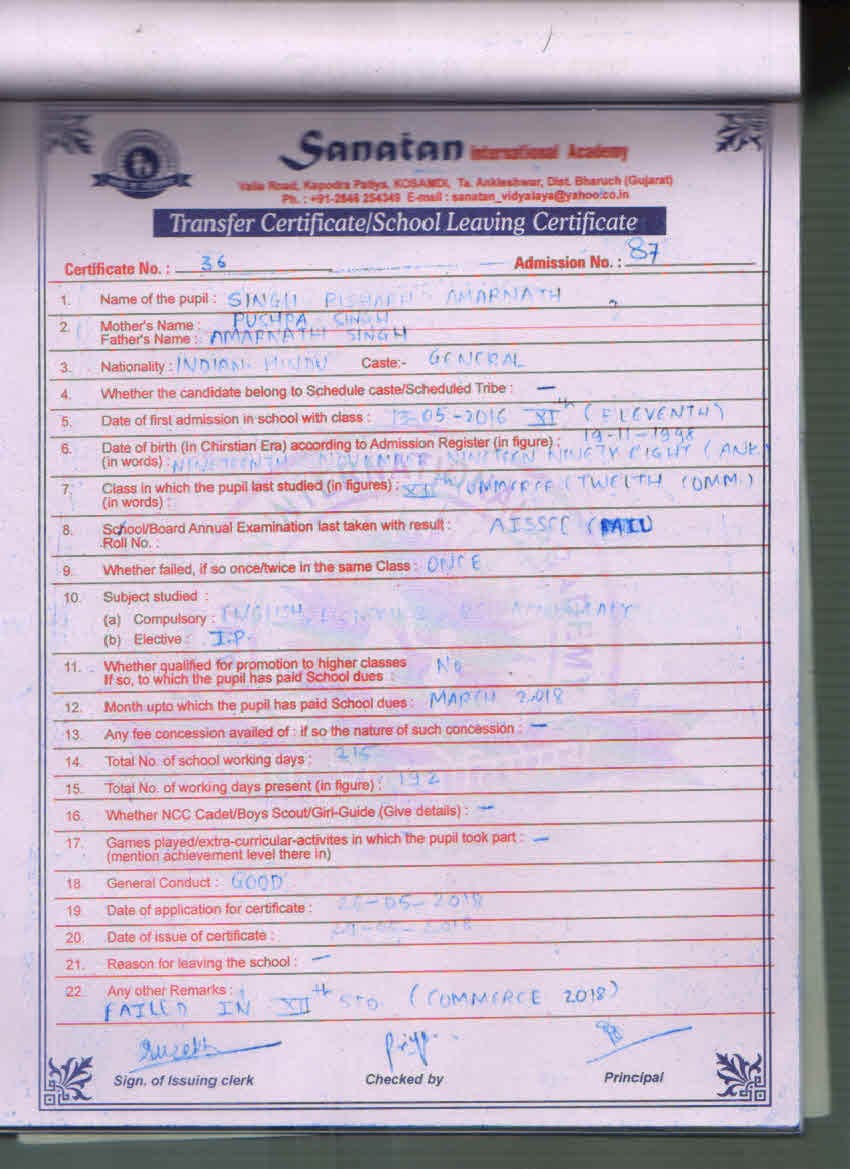 Sanatan International Academy
Valia Road, Kapodra Patiya, KOSAMDI, Ta. Ankleshwar, Dist. Bharuch (Gujarat)
Ph. : +91-2646 254349 E-mail : sanatan_vidyalaya@yahoo.co.in
Transfer Certificate/School Leaving Certificate
Certificate No. : 36 Admission No. : 87
1. Name of the pupil : SINGH RISHABH AMARNATH
2. Mother's Name : PUSHPA SINGH
Father's Name : AMARNATH SINGH
3. Nationality : INDIAN HINDU Caste:- GENERAL
4. Whether the candidate belong to Schedule caste/Scheduled Tribe : —
5. Date of first admission in school with class : 13-05-2016 XI th (ELEVENTH)
6. Date of birth (in Chirstian Era) according to Admission Register (in figure) : 19-11-1998
(in words) : NINETEENTH NOVEMBER NINETEEN NINETY EIGHT (ANK.)
7. Class in which the pupil last studied (in figures) : XII th COMMERCE (TWELTH COMM.)
(in words) :
8. School/Board Annual Examination last taken with result : AISSCE (FAIL)
Roll No. :
9. Whether failed, if so once/twice in the same Class : ONCE
10. Subject studied :
(a) Compulsory : ENGLISH,
(b) Elective : I.P.
11. Whether qualified for promotion to higher classes No
If so, to which the pupil has paid School dues :
12. Month upto which the pupil has paid School dues : MARCH 2018
13. Any fee concession availed of : if so the nature of such concession : —
14. Total No. of school working days : 215
15. Total No. of working days present (in figure) : 192
16. Whether NCC Cadet/Boys Scout/Girl-Guide (Give details) : —
17. Games played/extra-curricular-activites in which the pupil took part : —
(mention achievement level there in)
18. General Conduct : GOOD
19. Date of application for certificate : 26-05-2018
20. Date of issue of certificate :
21. Reason for leaving the school : —
22. Any other Remarks :
FAILED IN XII th STD (COMMERCE 2018)
Sign. of Issuing clerk Checked by Principal